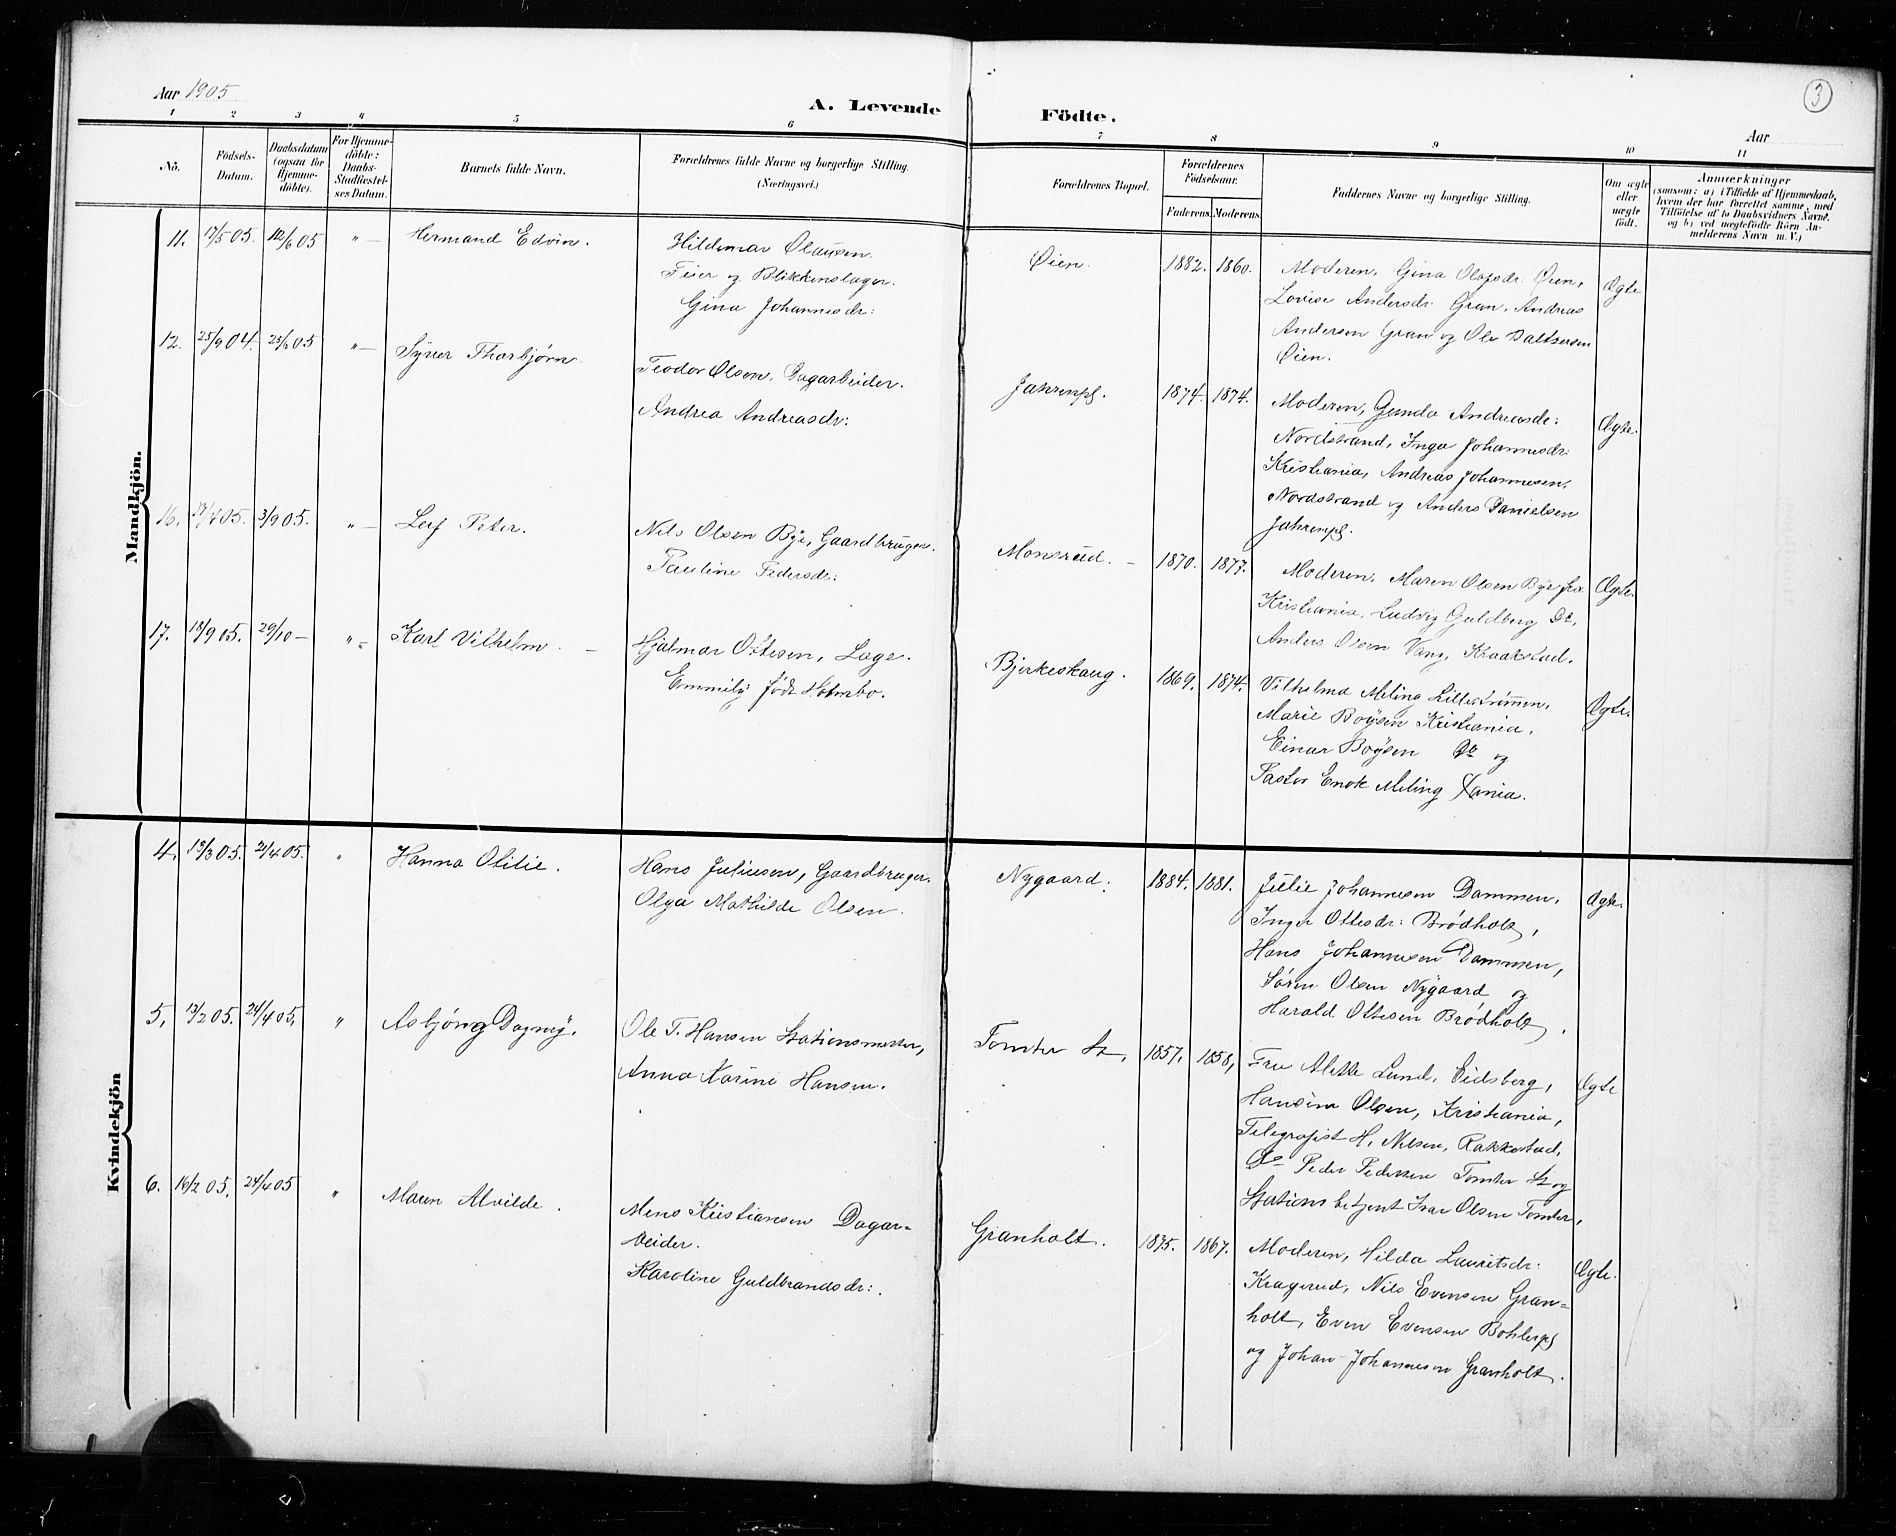 Aar 1905
A. Levende Födte.
3
Aar
1 2 3 4 5 6 7 8 9 10 11
No.
Födsels-Datum.
Daabsdatum (ogsaa for Hjemmedöbte).
For Hjemmedöbte: Daabs-Stadfæstelses Datum.
Barnets fulde Navn.
Forældrenes fulde Navne og borgerlige Stilling.
(Næringsvei.)
Forældrenes Bopæl.
Forældrenes Födselsaar.
Faderens. Moderens.
Faddernes Navne og borgerlige Stilling.
Om ægte eller uægte födt.
Anmærkninger
(saasom: a) i Tilfælde af Hjemmedaab, hvem der har forrettet samme, med Tilföielse af to Daabsvidners Navne, og b) ved uægtefödte Börn Anmelderens Navn m. V.)
Mandkjön.
11. 17/5 05. 12/6 05 "— Hermand Edvin.
Hildemar Olausen.
Feier og Blikkenslager.
Gina Johannesdr:
Øien. 1882. 1860.
Moderen, Gina Olafsdr: Øien,
Lovise Andersdr: Gran, Andreas
Andersen Gran og Ole Baltsersen
Øien.
Ægte
12. 25/9 04. 25/6 05 "— Syver Thorbjørn.
Teodor Olsen, Dagarbeider.
Andrea Andreasdr:
Jahrenpl. 1874. 1874.
Moderen, Gunda Andreasdr:
Nordstrand, Inga Johannesdr:
Kristiania, Andreas Johannesen,
Nordstrand og Anders Danielsen
Jahrenpl.
Ægte.
16. 17/4 05. 3/9 05. "— Leif Peter.
Nils Olsen Bye, Gaardbruger.
Pauline Pedersdr:
Monsrud. — 1870. 1877.
Moderen, Maren Olsen Bye fra
Kristiania, Ludvig Guldberg Do,
Anders Olsen Vang, Kraakstad.
Ægte.
17. 18/9 05. 29/10 — "— Karl Vilhelm. —
Hjalmar Ottesen, Læge.
Emmily født Holmbo.
Bjerkeskaug. 1869. 1874.
Vilhelma Meling Lillestrømmen,
Marie Boysen Kristiania,
Einar Boysen Do og
Pastor Enok Meling Xania.
Ægte.
Kvindekjön
4. 13/3 05. 21/4 05. " Hanna Otilie.
Hans Juliusen, Gaardbruger.
Olga Mathilde Olsen.
Nygaard. 1884. 1881.
Julie Johannesen Dammen,
Inger Ottesdr: Brødholt,
Hans Johannesen Dammen,
Søren Olsen Nygaard og
Harald Ottesen Brødholt.
Ægte.
5. 13/2 05. 24/4 05. " Asbjørg Dagny.
Ole T. Hansen Stationsmester,
Anna Karine Hansen.
Tomter St. 1857. 1858,
Fru Alette Lund, Eidsberg,
Hansine Olsen, Kristiania,
Telegrafist H. Nilsen, Rakkestad,
Do Peder Pedersen Tomter St og
Stationsbetjent Ivar Olsen Tomter,
Ægte
6. 16/2 05. 24/4 05 " Maren Alvilde.
Mens Kristiansen Dagar=
beider.
Karoline Guldbrandsdr:.
Granholt. 1875. 1867.
Moderen, Hilda Lauritsdr:
Kragerud, Nils Evensen Gran=
holt, Even Evensen Bøhlerpl
og Johan Johannesen Granholt.
Ægte.